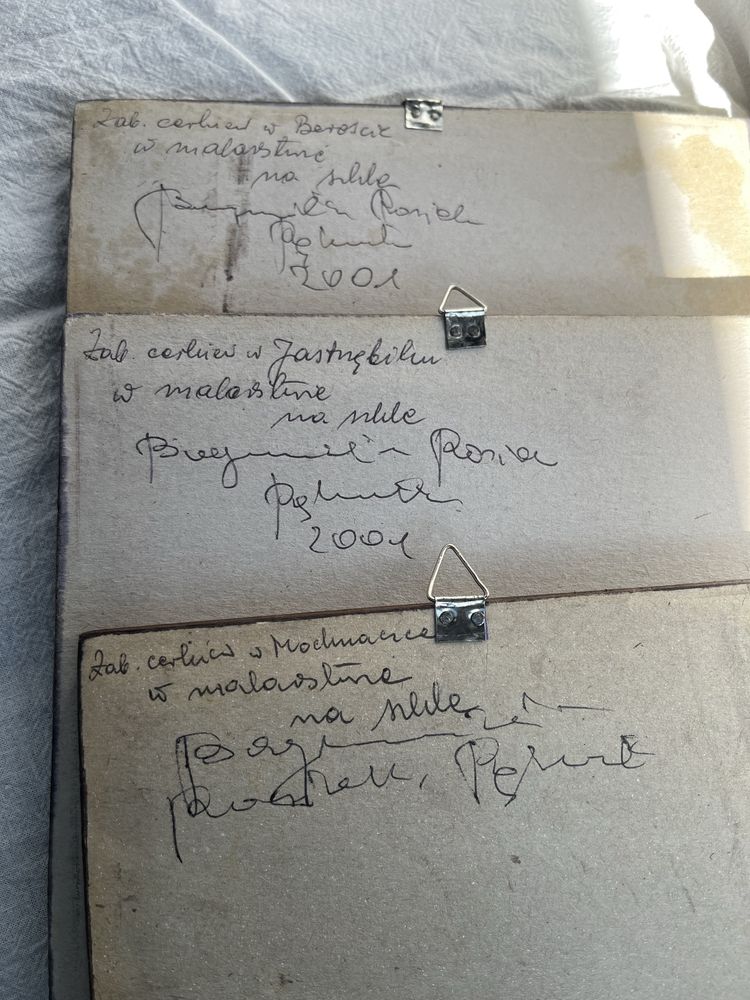 Zab. cerkiew w Bereście
w malarstwie
na szkle
Bogumiła Rosiek
Pękuta
2001
Zab. cerkiew w Jastrzębiku
w malarstwie
na szkle
Bogumiła Rosiek
2001
Zab. cerkiew w Mochnaczce
w malarstwie
na szkle
Bogumiła
Rosiek,